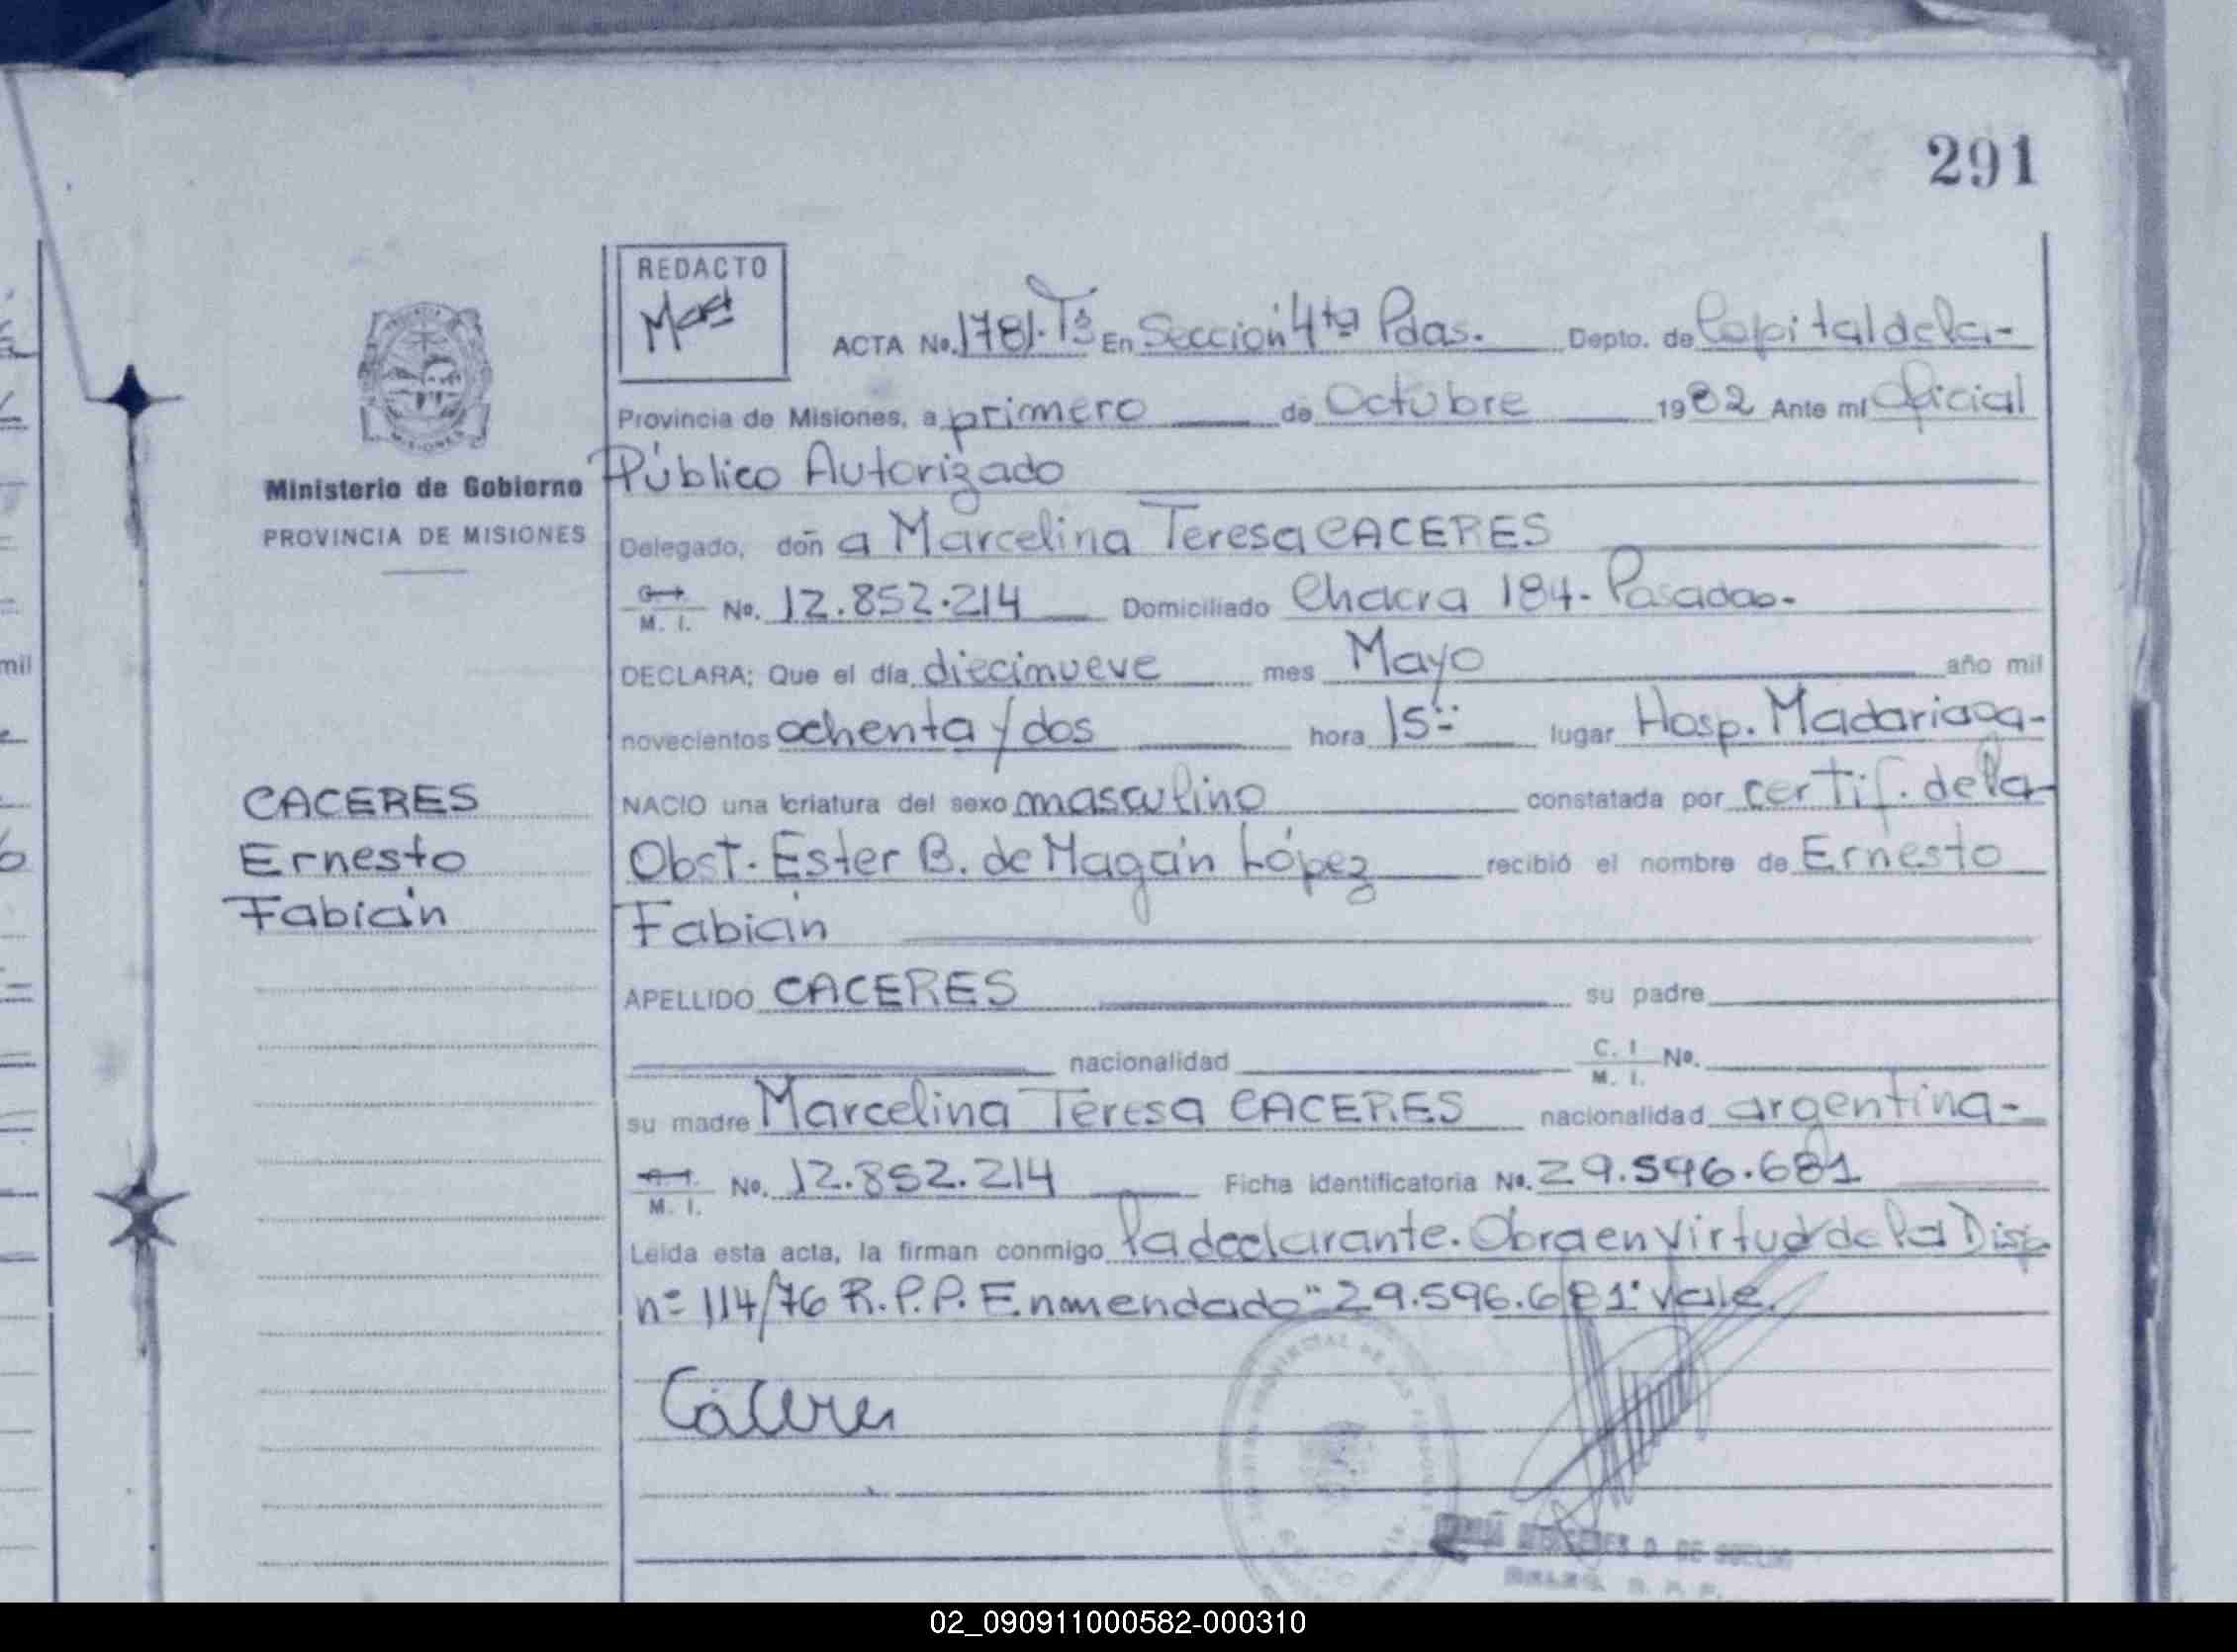 291
REDACTO
ACTA No. 1781. Tº3 En Sección 4ta Pdas. Depto. de Capital de la-
Provincia de Misiones, a primero de Octubre 1982 Ante mí Oficial
Público Autorizado
Ministerio de Gobierno
PROVINCIA DE MISIONES
Delegado, doña Marcelina Teresa CACERES
M. I. No. 12.852.214 Domiciliado Chacra 184- Posadas-
DECLARA: Que el día diecinueve mes Mayo año mil
novecientos ochenta y dos hora 15:: lugar Hosp. Madariaga-
NACIO una criatura del sexo masculino constatada por certif. de la
Obst. Ester B. de Magán López recibió el nombre de Ernesto
Fabián
CACERES
Ernesto
Fabián
APELLIDO CACERES su padre
nacionalidad C. I. M. I. No.
su madre Marcelina Teresa CACERES nacionalidad argentina-
M. I. No. 12.852.214 Ficha identificatoria No. 29.596.681
Leída esta acta, la firman conmigo la declarante. Obra en virtud de la Disp.
nº 114/76 R.P.P. Enmendado "29.596.681" vale.
Cáceres
mil
02_090911000582-000310